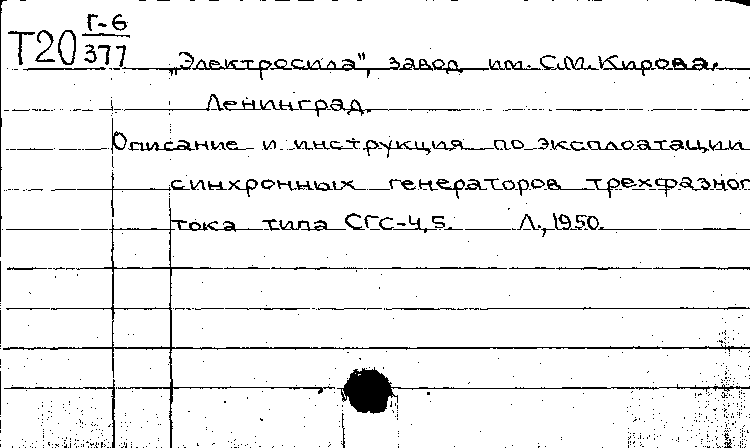 Г-6
Т20 377
„Электросила", завод им. С.М. Кирова.
Ленинград.
Описание и инструкция по эксплоатации
синхронных генераторов трехфазног
тока типа СГС-4,5. Л., 1950.